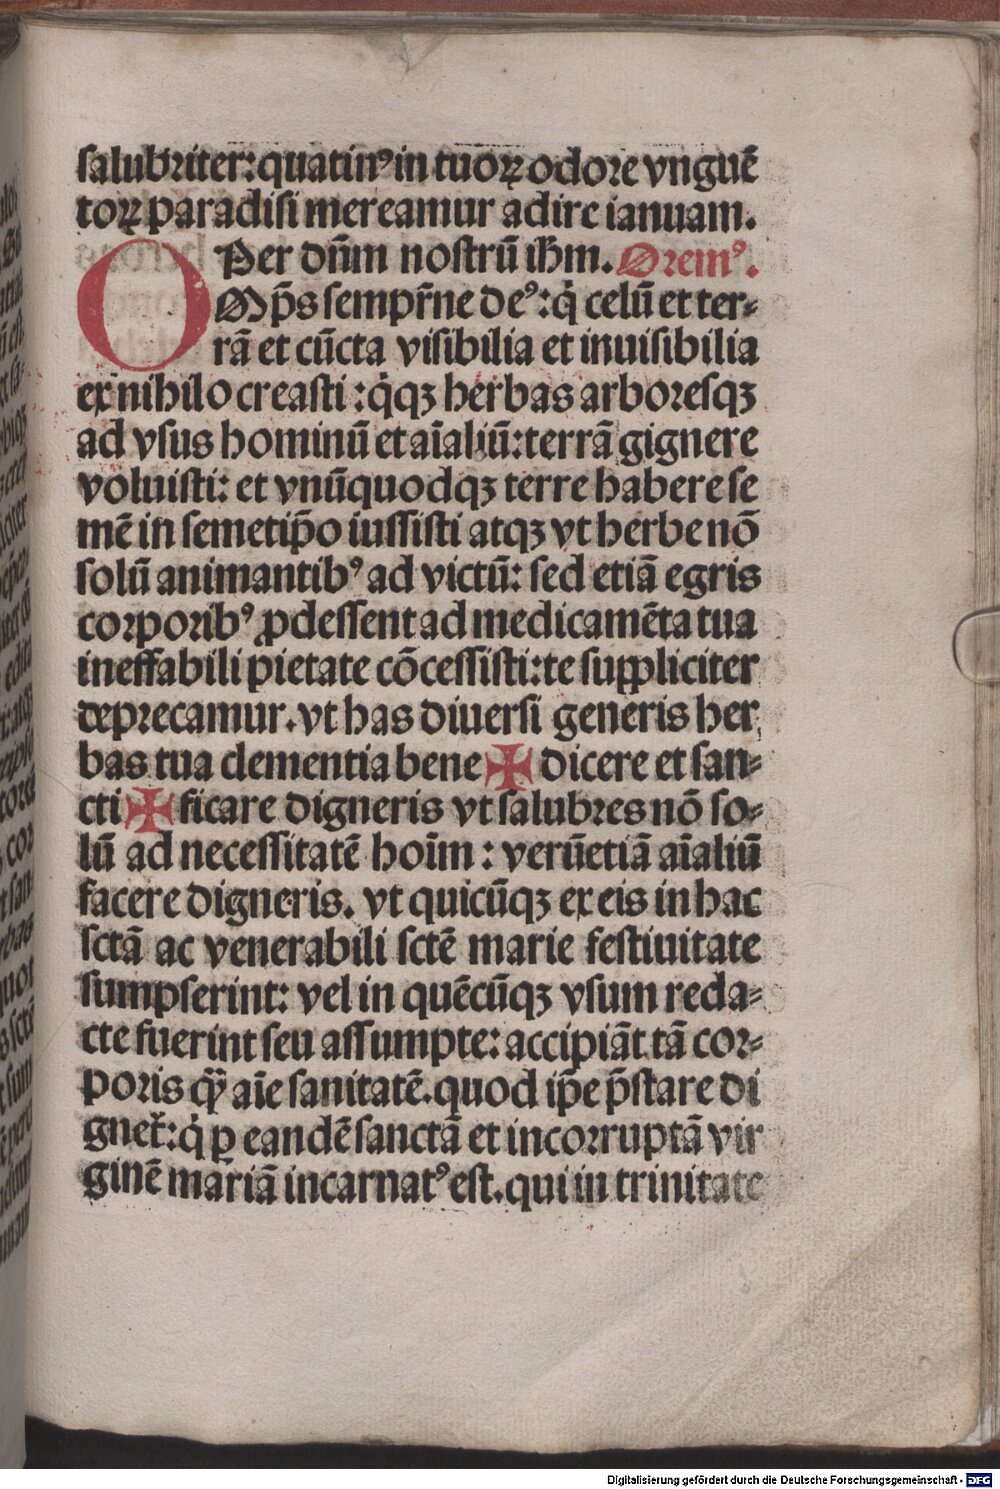 salubriter: quatinꝰ in tuoꝝ odore vnguē
toꝝ paradisi mereamur adire ianuam.
Per dn̄m nostrū ih̄m. Oremꝰ.
OMp̄s sempr̄ne deꝰ: q̇ celū et ter⸗
rā et cūcta visibilia et inuisibilia
ex nihilo creasti: q̇qꝫ herbas arboresqꝫ
ad vsus hominū et aīaliū: terrā gignere
voluisti: et vnūquodqꝫ terre habere se
mē in semetip̄o iussisti atqꝫ vt herbe nō
solū animantibꝰ ad victū: sed etiā egris
corporibꝰ ꝓdessent ad medicamēta tua
ineffabili pietate cōcessisti: te suppliciter
deprecamur. vt has diuersi generis her
bas tua clementia bene ✠ dicere et san⸗
cti ✠ ficare digneris vt salubres nō so⸗
lū ad necessitatē hoīm: verūetiā aīaliū
facere digneris. vt quicūqꝫ ex eis in hac
sctā ac venerabili sctē marie festiuitate
sumpserint: vel in quēcūqꝫ vsum reda⸗
cte fuerint seu assumpte: accipiāt tā cor⸗
poris qꝫ̄ aīe sanitatē. quod ip̄e p̄stare di
gnet᷑: q̇ ꝑ eandē sanctā et incorruptā vir
ginē mariā incarnatꝰ est. qui in trinitate
Digitalisierung gefördert durch die Deutsche Forschungsgemeinschaft - DFG